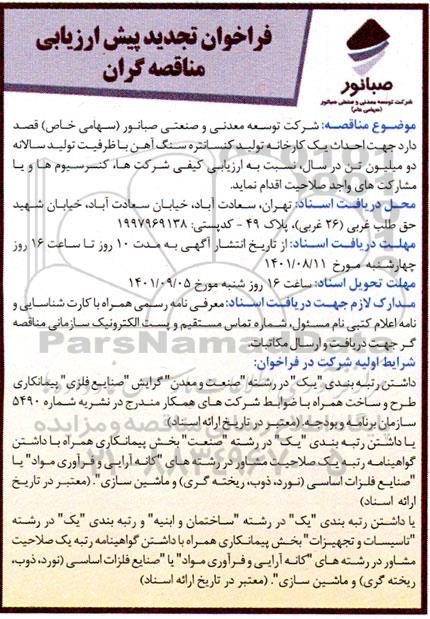 فراخوان تجدید پیش ارزیابی
مناقصه گران
صبانور
شرکت توسعه معدنی و صنعتی صبانور
(سهامی عام)
موضوع مناقصه: شرکت توسعه معدنی و صنعتی صبانور (سهامی خاص) قصد
دارد جهت احداث یک کارخانه تولید کنسانتره سنگ آهن با ظرفیت تولید سالانه
دو میلیون تن در سال، نسبت به ارزیابی کیفی شرکت ها، کنسرسیوم ها و یا
مشارکت های واجد صلاحیت اقدام نماید.
محل دریافت اسناد: تهران، سعادت آباد، خیابان سعادت آباد، خیابان شهید
حق طلب غربی (۲۶ غربی)، پلاک ۴۹ - کدپستی: ۱۹۹۷۹۶۹۱۳۸
مهلت دریافت اسناد: از تاریخ انتشار آگهی به مدت ۱۰ روز تا ساعت ۱۶ روز
چهارشنبه مورخ ۱۴۰۱/۰۸/۱۱
مهلت تحویل اسناد: ساعت ۱۶ روز شنبه مورخ ۱۴۰۱/۰۹/۰۵
مدارک لازم جهت دریافت اسناد: معرفی نامه رسمی همراه با کارت شناسایی و
نامه اعلام کتبی نام مسئول، شماره تماس مستقیم و پست الکترونیک سازمانی مناقصه
گر جهت دریافت و ارسال مکاتبات.
شرایط اولیه شرکت در فراخوان:
داشتن رتبه بندی "یک" در رشته "صنعت و معدن" گرایش "صنایع فلزی" پیمانکاری
طرح و ساخت همراه با ضوابط شرکت های همکار مندرج در نشریه شماره ۵۴۹۰
سازمان برنامه و بودجه. (معتبر در تاریخ ارائه اسناد)
یا داشتن رتبه بندی "یک" در رشته "صنعت" بخش پیمانکاری همراه با داشتن
گواهینامه رتبه یک صلاحیت مشاور در رشته های "کانه آرایی و فرآوری مواد" یا
"صنایع فلزات اساسی (نورد، ذوب، ریخته گری) و ماشین سازی". (معتبر در تاریخ
ارائه اسناد)
یا داشتن رتبه بندی "یک" در رشته "ساختمان و ابنیه" و رتبه بندی "یک" در رشته
"تاسیسات و تجهیزات" بخش پیمانکاری همراه با داشتن گواهینامه رتبه یک صلاحیت
مشاور در رشته های "کانه آرایی و فرآوری مواد" یا "صنایع فلزات اساسی (نورد، ذوب،
ریخته گری) و ماشین سازی". (معتبر در تاریخ ارائه اسناد)
ParsNamadData